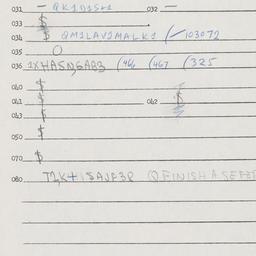 031 — QK1D1S+1 032 —
033 $
034 $ QM1LAV2MALK1 /—103072
035 O
036 1XHASNGAB3 (466 (467 (325
040 $
041 $ 042 $
043 $
050 $
070 $
080 T2K+1SAJF3P Q FINISH A